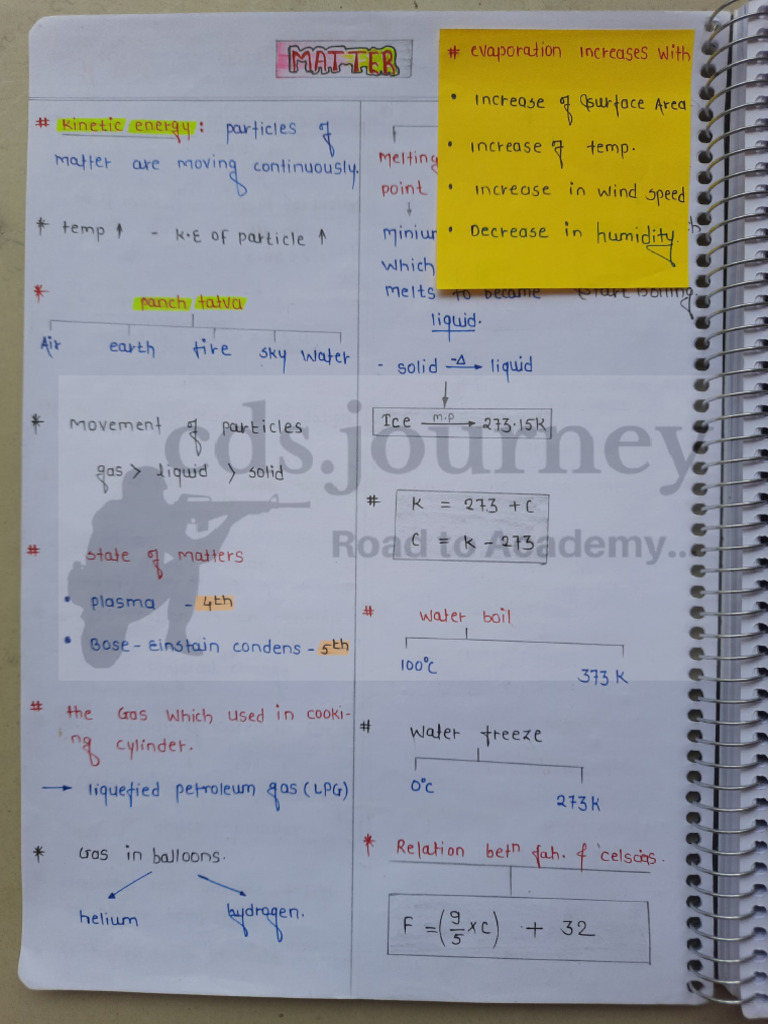 MATTER
# Kinetic energy: particles of
matter are moving continuously.
* temp ↑ - K.E of particle ↑
*
panch tatva
Air earth fire sky water
* movement of particles
gas > liquid > solid
# state of matters
• plasma - 4th
• Bose-Einstain condens - 5th
# the Gas which used in cooki-
ng cylinder.
→ liquefied petroleum gas (LPG)
* Gas in balloons.
helium hydrogen.
# evaporation increases with
• increase of surface Area.
• increase of temp.
• increase in wind speed
• Decrease in humidity.
melting
point
↓
which
melts to became start boiling
liquid.
- solid -Δ→ liquid
↓
Ice m.p → 273.15K
# K = 273 + C
C = K - 273
# water boil
100°C 373 K
# water freeze
0°C 273 K
* Relation betn fah. & celscias.
F = (9/5 × C) + 32
cds.journey
Road to Academy...